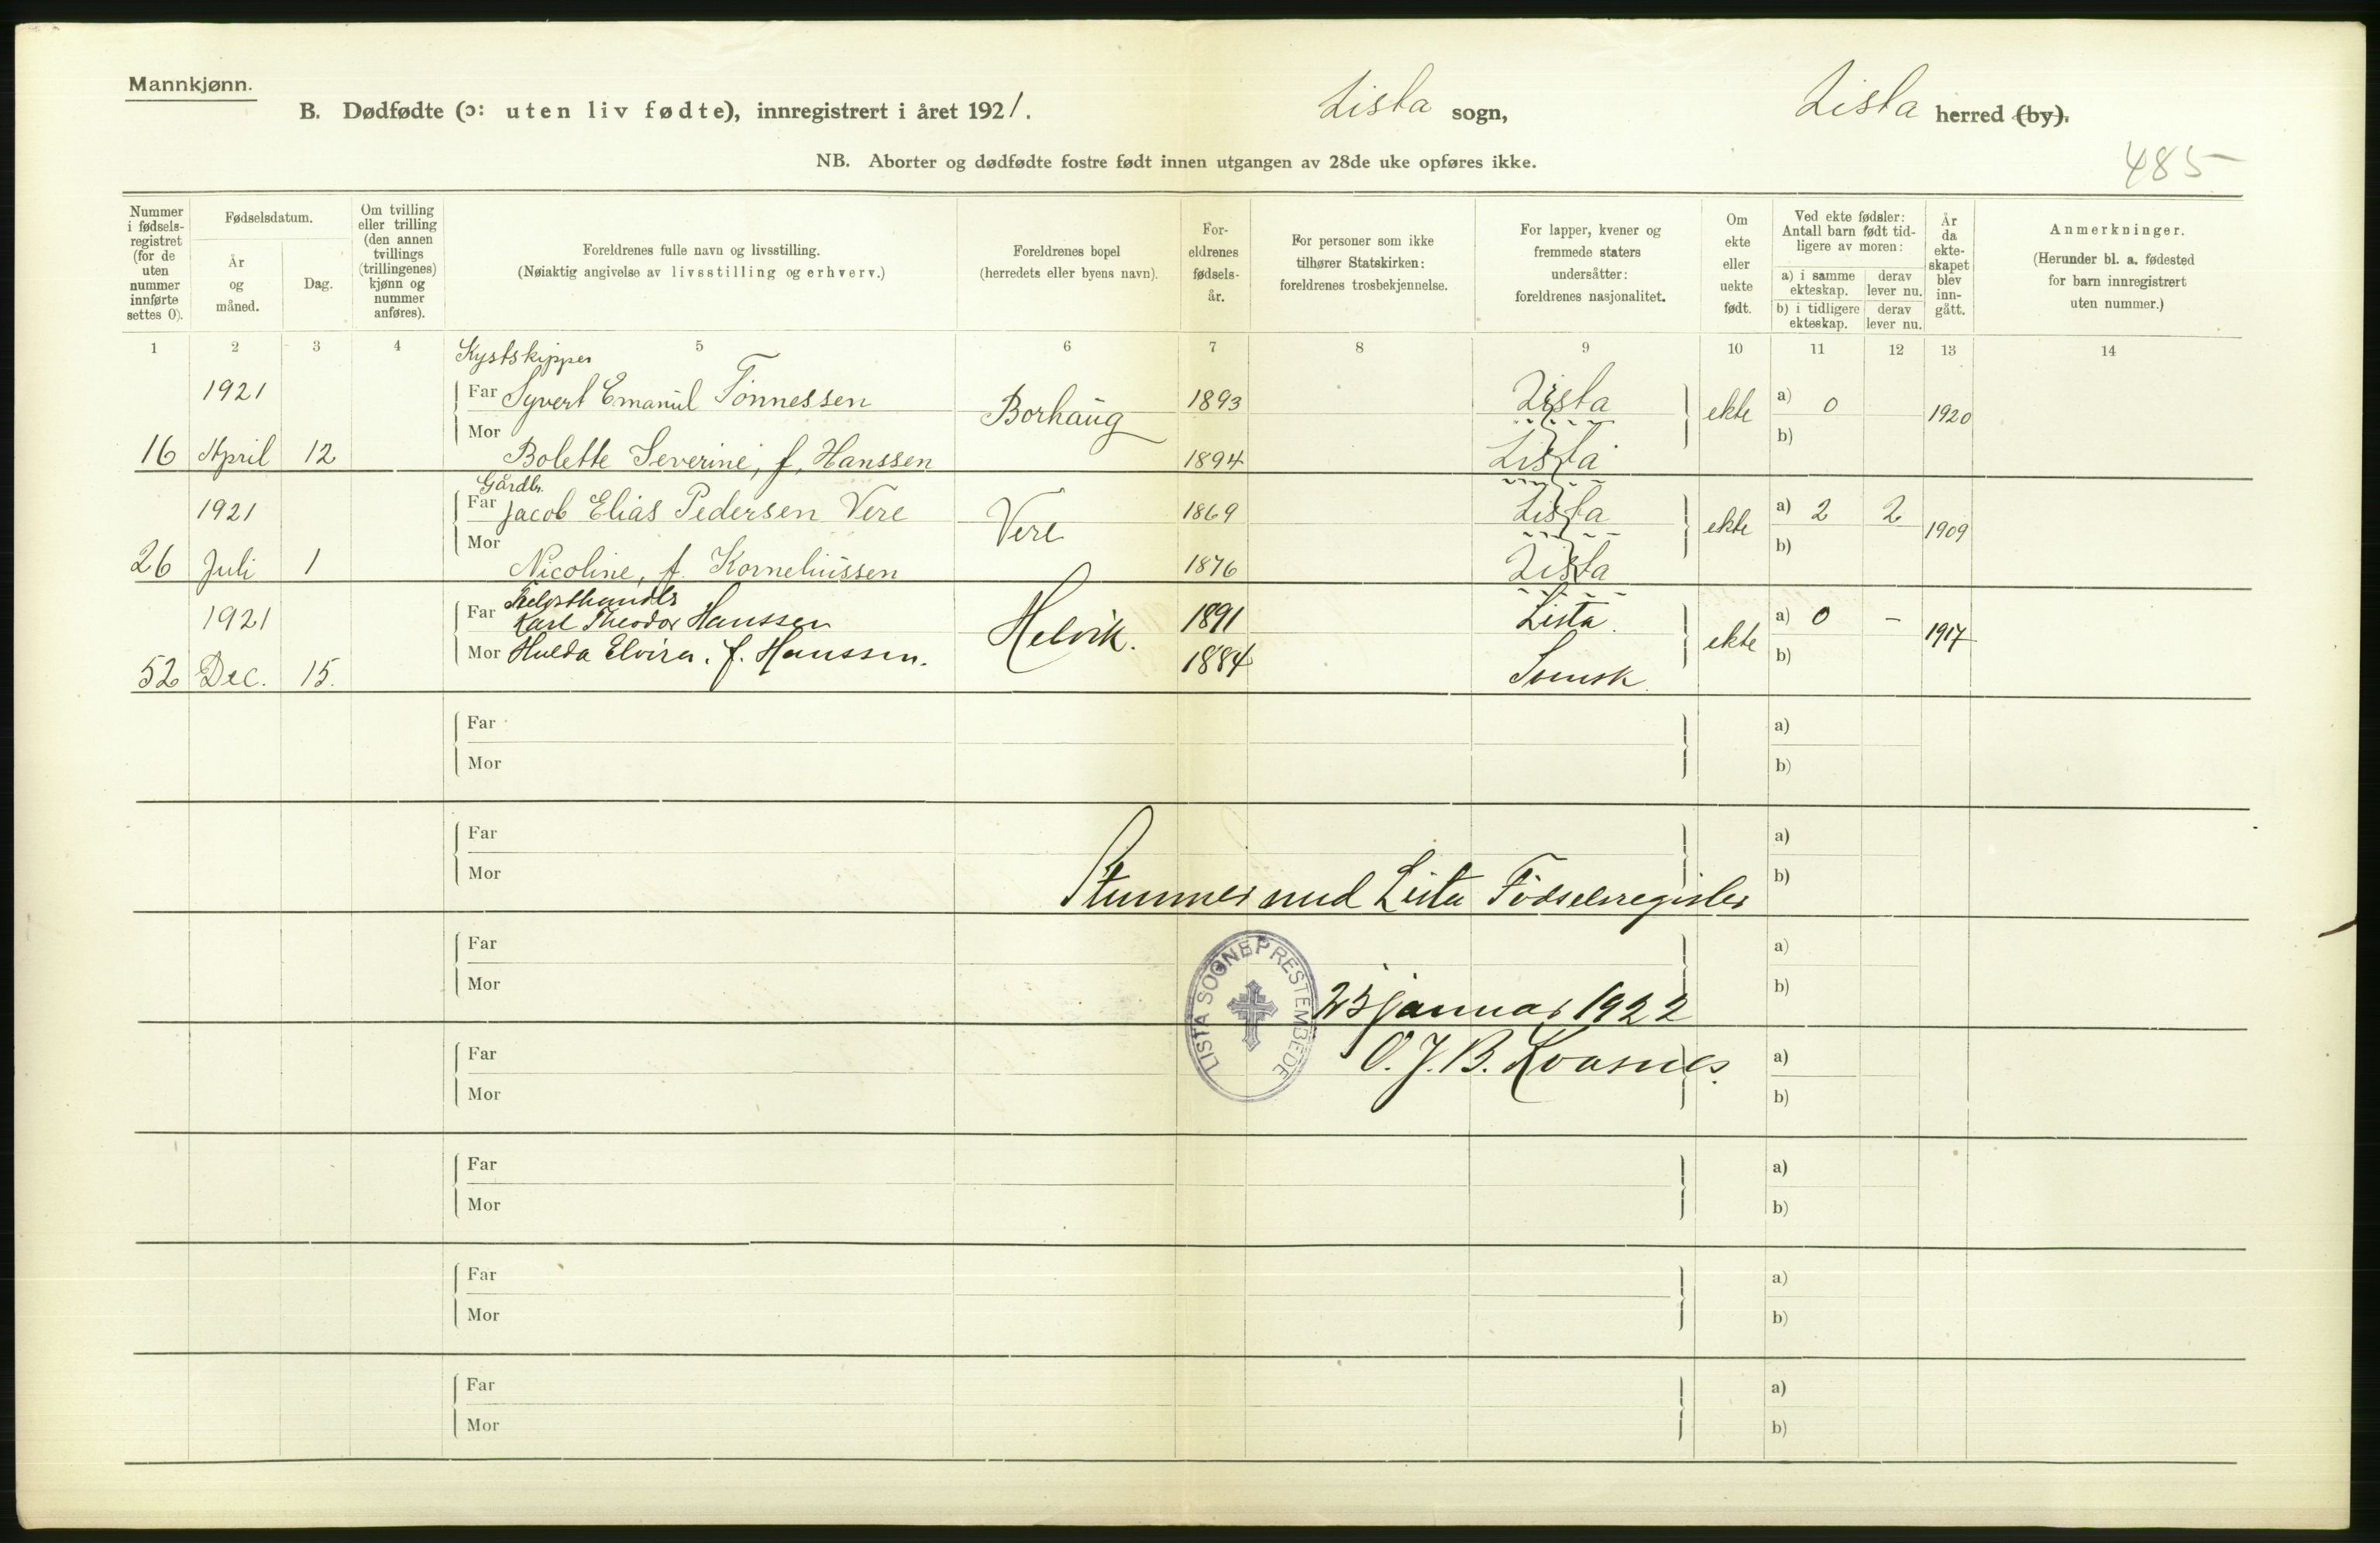 Mannkjønn.
B. Dødfødte (ɔ: uten liv fødte), innregistrert i året 1921. Lista sogn, Lista herred (by).
NB. Aborter og dødfødte fostre født innen utgangen av 28de uke opføres ikke.
485
Nummer i fødsels-registret (for de uten nummer innførte settes 0).
Fødselsdatum.
År og måned.
Dag.
Om tvilling eller trilling (den annen tvillings (trillingenes) kjønn og nummer anføres).
Foreldrenes fulle navn og livsstilling.
(Nøiaktig angivelse av livsstilling og erhverv.)
Foreldrenes bopel
(herredets eller byens navn).
For-eldrenes fødsels-år.
For personer som ikke tilhører Statskirken: foreldrenes trosbekjennelse.
For lapper, kvener og fremmede staters undersåtter: foreldrenes nasjonalitet.
Om ekte eller uekte født.
Ved ekte fødsler: Antall barn født tid-ligere av moren:
a) i samme ekteskap. derav lever nu.
b) i tidligere ekteskap. derav lever nu.
År da ekte-skapet blev inn-gått.
Anmerkninger.
(Herunder bl. a. fødested for barn innregistrert uten nummer.)
1 2 3 4 5 6 7 8 9 10 11 12 13 14
Kystskipper
1921 Far Syvert Emanuel Tönnessen Borhaug 1893 Lista ekte a) 0 1920
Mor b)
16 April 12 Bolette Severine, f. Hanssen 1894 Lista
Gårdbr.
1921 Far Jacob Elias Pedersen Vere Vere 1869 Lista ekte a) 2 2 1909
Mor b)
26 Juli 1 Nicoline, f. Korneliussen 1876 Lista
1921 Far Karl Theodor Hanssen Helvik. 1891 Lista. ekte a) 0 - 1917
Mor Hulda Elvira. f. Hanssen. 1884 b)
52 Dec. 15. Svensk.
Far a)
Mor b)
Far a)
Mor b)
Stemmer med Lista Födselsregister
Far a)
Mor b)
LISTA SOGNEPRESTEMBEDE
25 januar 1922
Far a)
O. J. B. Kvasnes.
Mor b)
Far a)
Mor b)
Far a)
Mor b)
Far a)
Mor b)